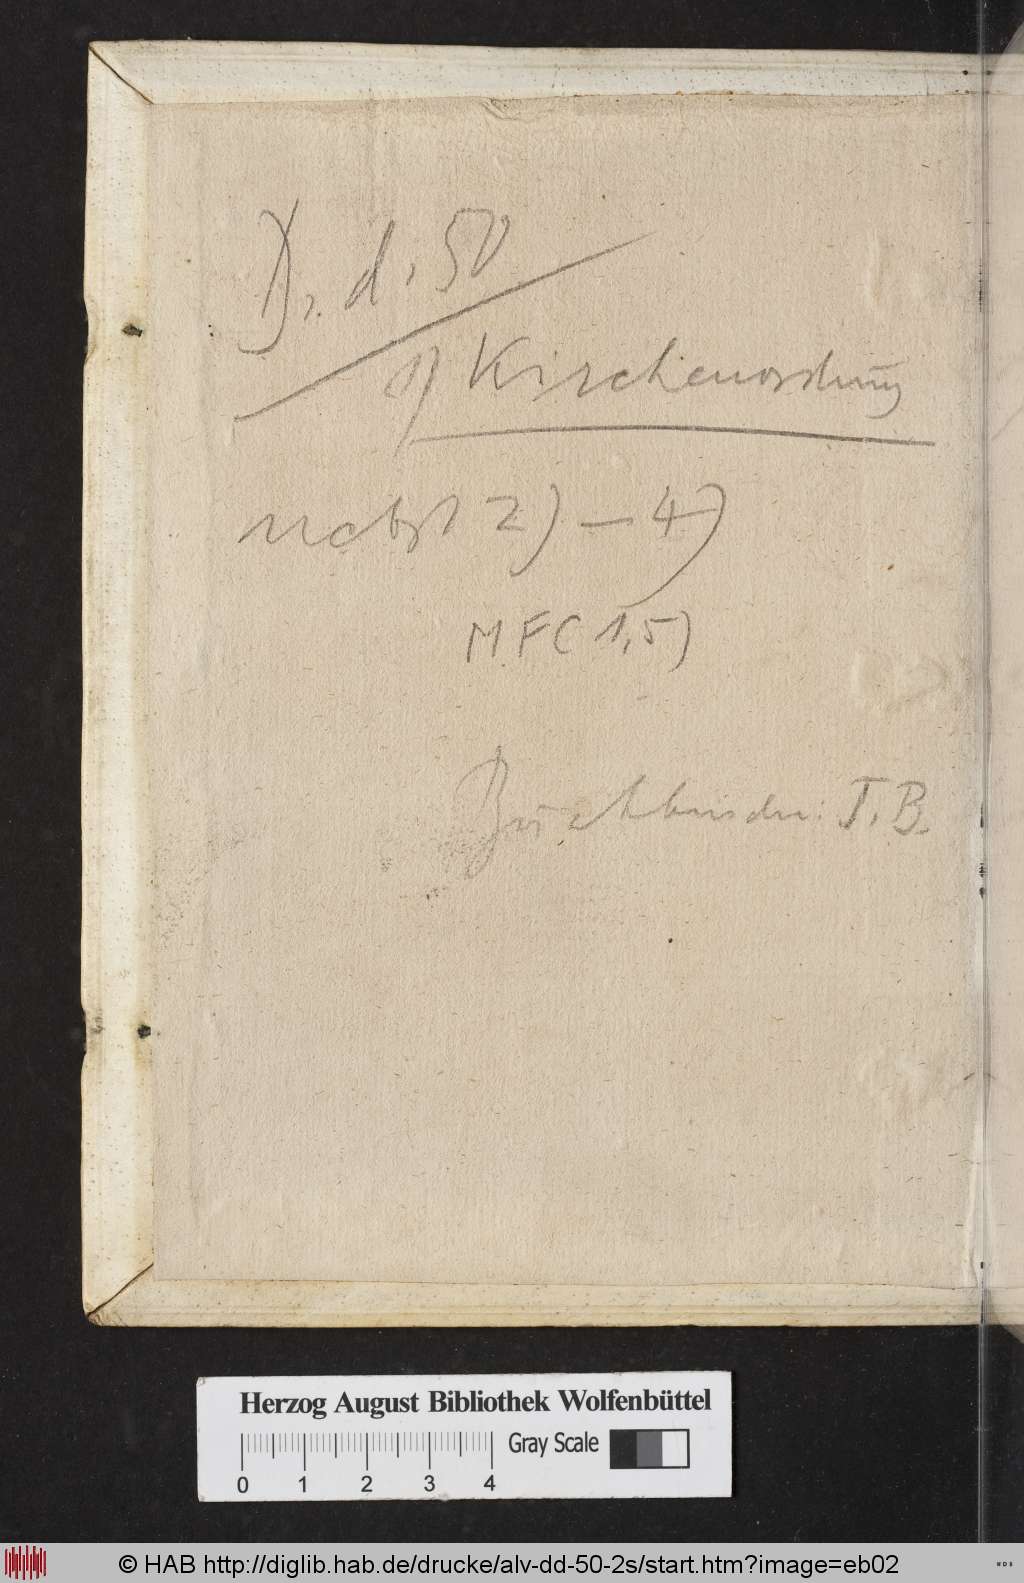 D. d. 50
1) Kirchenordnung
nebst 2) — 4)
MFC 1,5)
Buchbinder: T. B.
Herzog August Bibliothek Wolfenbüttel
Gray Scale
0 1 2 3 4
© HAB http://diglib.hab.de/drucke/alv-dd-50-2s/start.htm?image=eb02
WDB